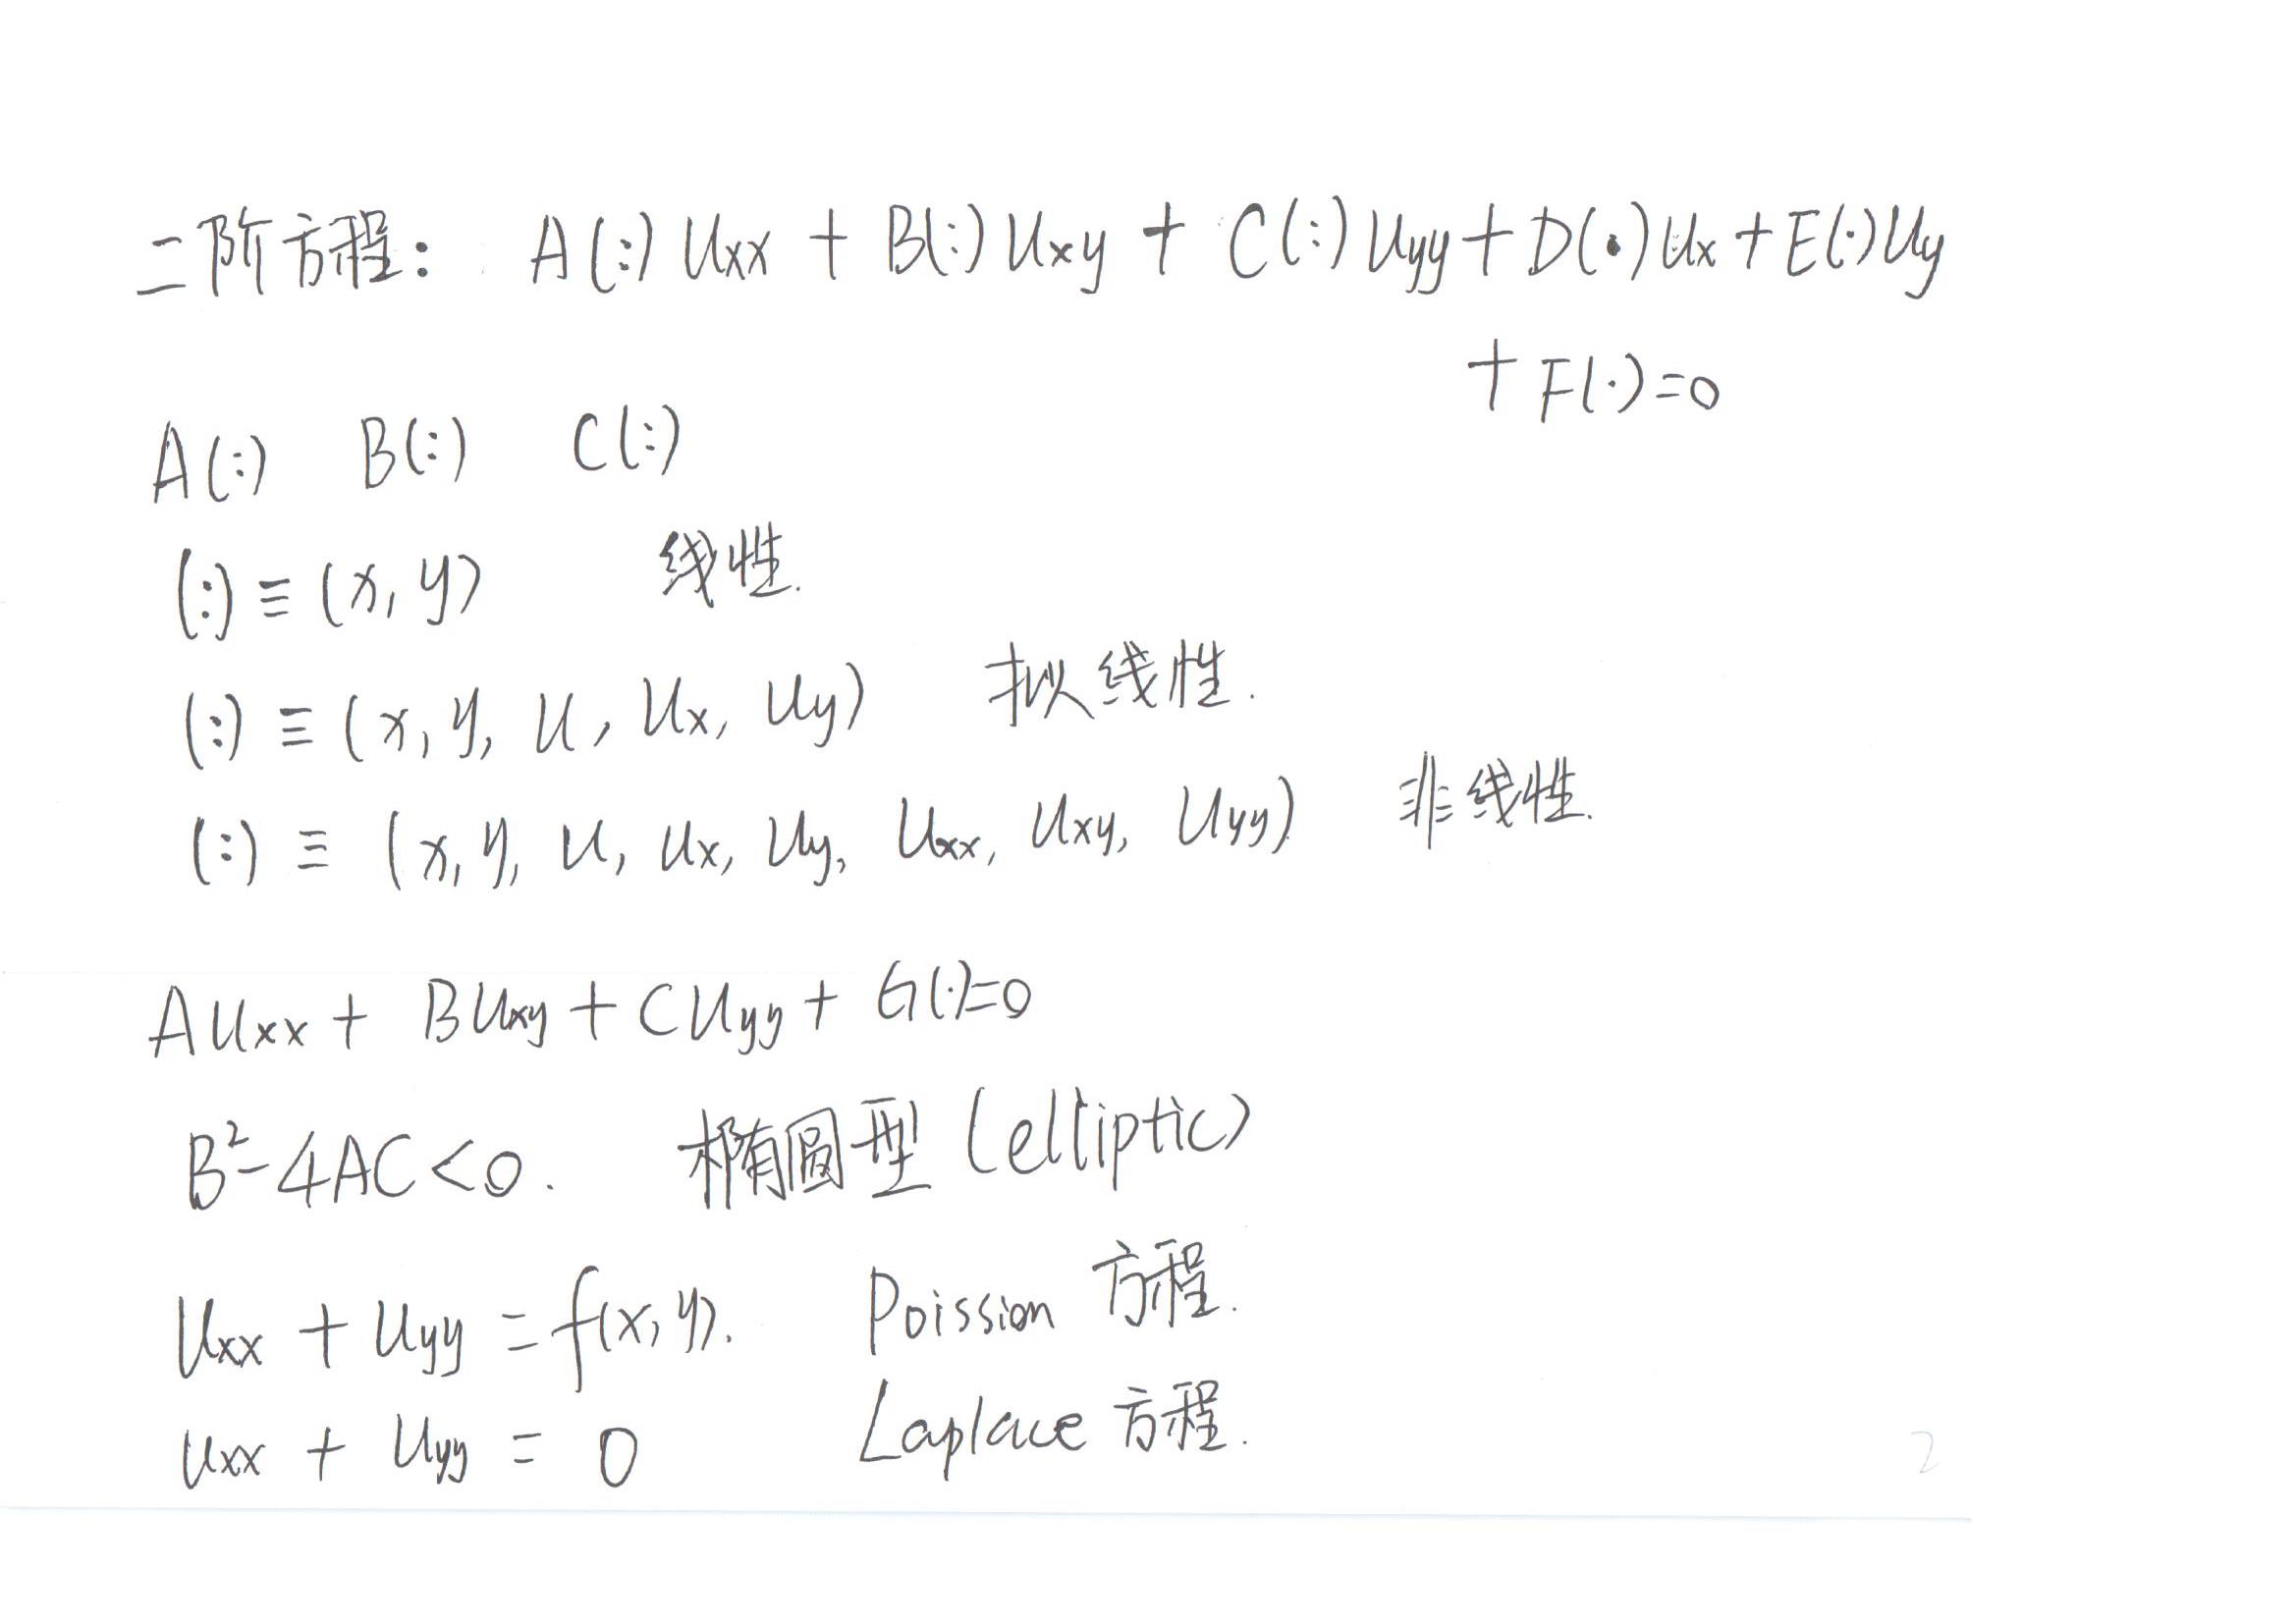 二阶方程: A(:) Uxx + B(:) Uxy + C(:) Uyy + D(·) Ux + E(·) Uy
+ F(·) = 0
A(:) B(:) C(:)
(:) ≡ (x, y) 线性.
(:) ≡ (x, y, u, ux, uy) 拟线性.
(:) ≡ (x, y, u, ux, uy, uxx, uxy, uyy) 非线性.
A Uxx + B Uxy + C Uyy + G(·) = 0
B² - 4AC < 0. 椭圆型 (elliptic)
Uxx + Uyy = f(x, y). Poission 方程.
Uxx + Uyy = 0 Laplace 方程.
2